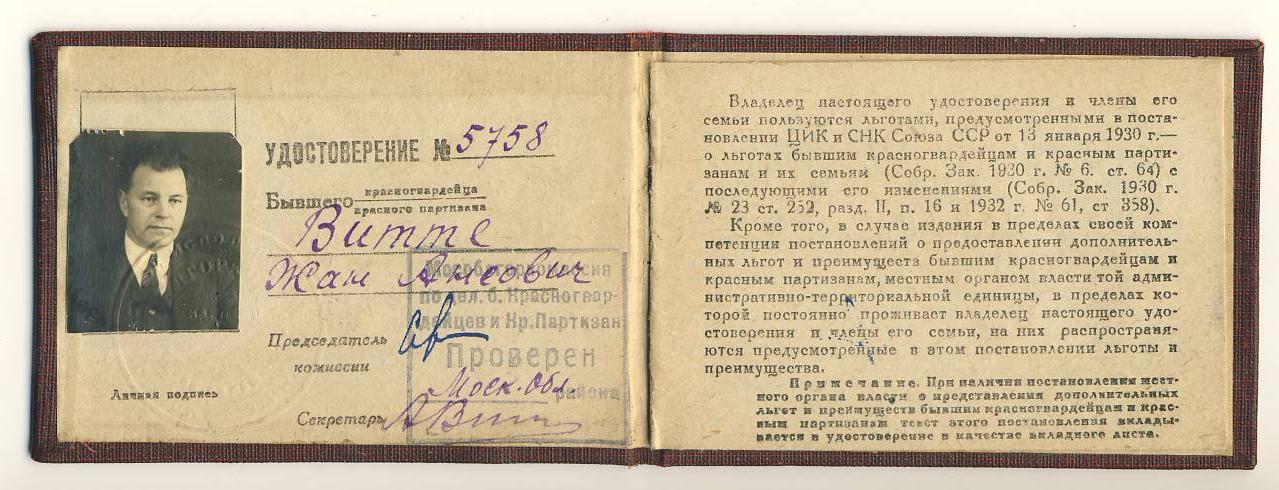 УДОСТОВЕРЕНИЕ № 5758
Бывшего красногвардейца
красного партизана
Витте
Жан
Председатель
комиссии
Личная подпись
Секретарь
по дел. б. Красногвар-
дейцев и Кр. Партизан
Проверен
Моск. Обл.
района
Владелец настоящего удостоверения и члены его
семьи пользуются льготами, предусмотренными в поста-
новлении ЦИК и СНК Союза ССР от 13 января 1930 г.—
о льготах бывшим красногвардейцам и красным парти-
занам и их семьям (Собр. Зак. 1930 г. № 6. ст. 64) с
последующими его изменениями (Собр. Зак. 1930 г.
№ 23 ст. 252, разд. II, п. 16 и 1932 г. № 61, ст 358).
Кроме того, в случае издания в пределах своей ком-
петенции постановлений о предоставлении дополнитель-
ных льгот и преимуществ бывшим красногвардейцам и
красным партизанам, местным органом власти той адми-
нистративно-территориальной единицы, в пределах ко-
торой постоянно проживает владелец настоящего удо-
стоверения и члены его семьи, на них распространя-
ются предусмотренные в этом постановлении льготы и
преимущества.
Примечание. При наличии постановления мест-
ного органа власти о представлении дополнительных
льгот и преимуществ бывшим красногвардейцам и крас-
ным партизанам текст этого постановления вклады-
вается в удостоверение в качестве вкладного листа.